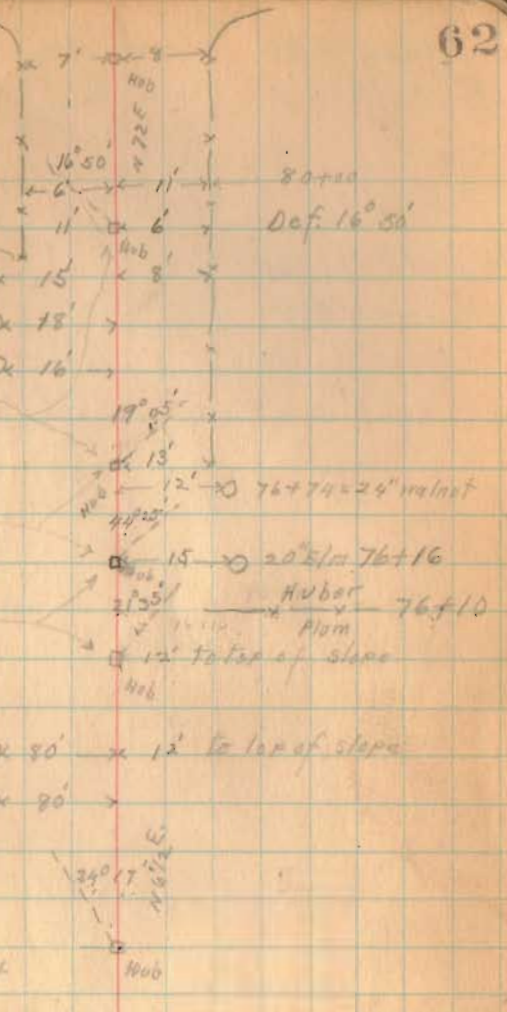 62
7' 8
Hob
N 72 E
16° 50'
6' 11' 80+00
11' 6' Def. 16° 50'
Hob
15' 8'
18'
16'
19° 05'
13'
Hob 12' 76+74 = 24" walnut
44° 25'
15 20" Elm 76+16
Hob
21° 35' Huber 76+10
Plom
12' to top of slope
Hob
80' 12' to top of slope
80'
34° 17' N 6 1/2 E.
Hub